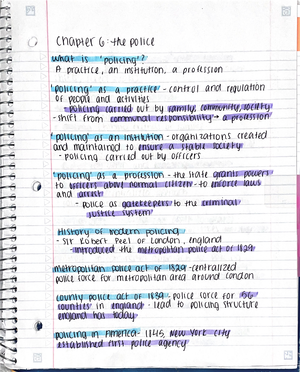 Chapter 6: the police
What is "policing"?
A practice, an institution, a profession
"policing" as a practice - control and regulation
of people and activities
- policing carried out by family, community, society
- shift from communal responsibility → a profession
"policing" as an institution - organizations created
and maintained to ensure a stable society
- policing carried out by officers
"policing" as a profession - the state grants powers
to officers above normal citizen - to enforce laws
and arrest
- police as gatekeepers to the criminal
justice system
History of modern policing
- Sir Robert Peel of London, england
- introduced the metropolitan police act of 1829
metropolitan police act of 1829 - centralized
police force for metropolitan area around london
county police act of 1839 - police force for
counties in england - lead to policing structure
england has today
policing in America - 1845, New York city
established first police agency